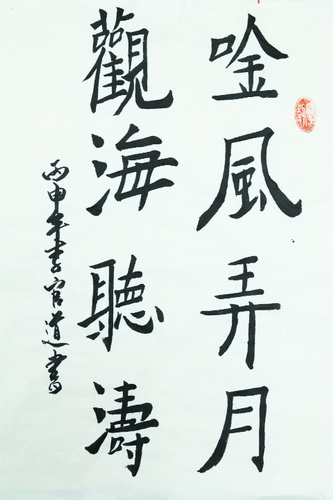 唫風弄月
觀海聽濤
丙申年李官道書